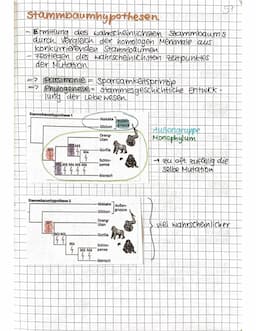 Stammbaumhypothesen
- Ermittlung des wahrscheinlichsten Stammbaums
durch Vergleich der homologen Merkmale aus
konkurrierenden Stammbäumen
- Festlegen des wahrscheinlichsten Zeitpunktes
der Mutation
=> Parsimonie = Sparsamkeitsprinzip
=> Phylogenese = stammesgeschichtliche Entwick-
lung der Lebewesen.
Stammbaumhypothese 1
Orang-
Utan
Gorilla
Schim-
panse
Mensch
Außengruppe
Monophylum
→ zu oft zufällig die
selbe Mutation
Stammbaumhypothese 2
außen-
gruppe
Orang-
Utan
Gorilla
Schim-
panse
Mensch
viel wahrscheinlicher